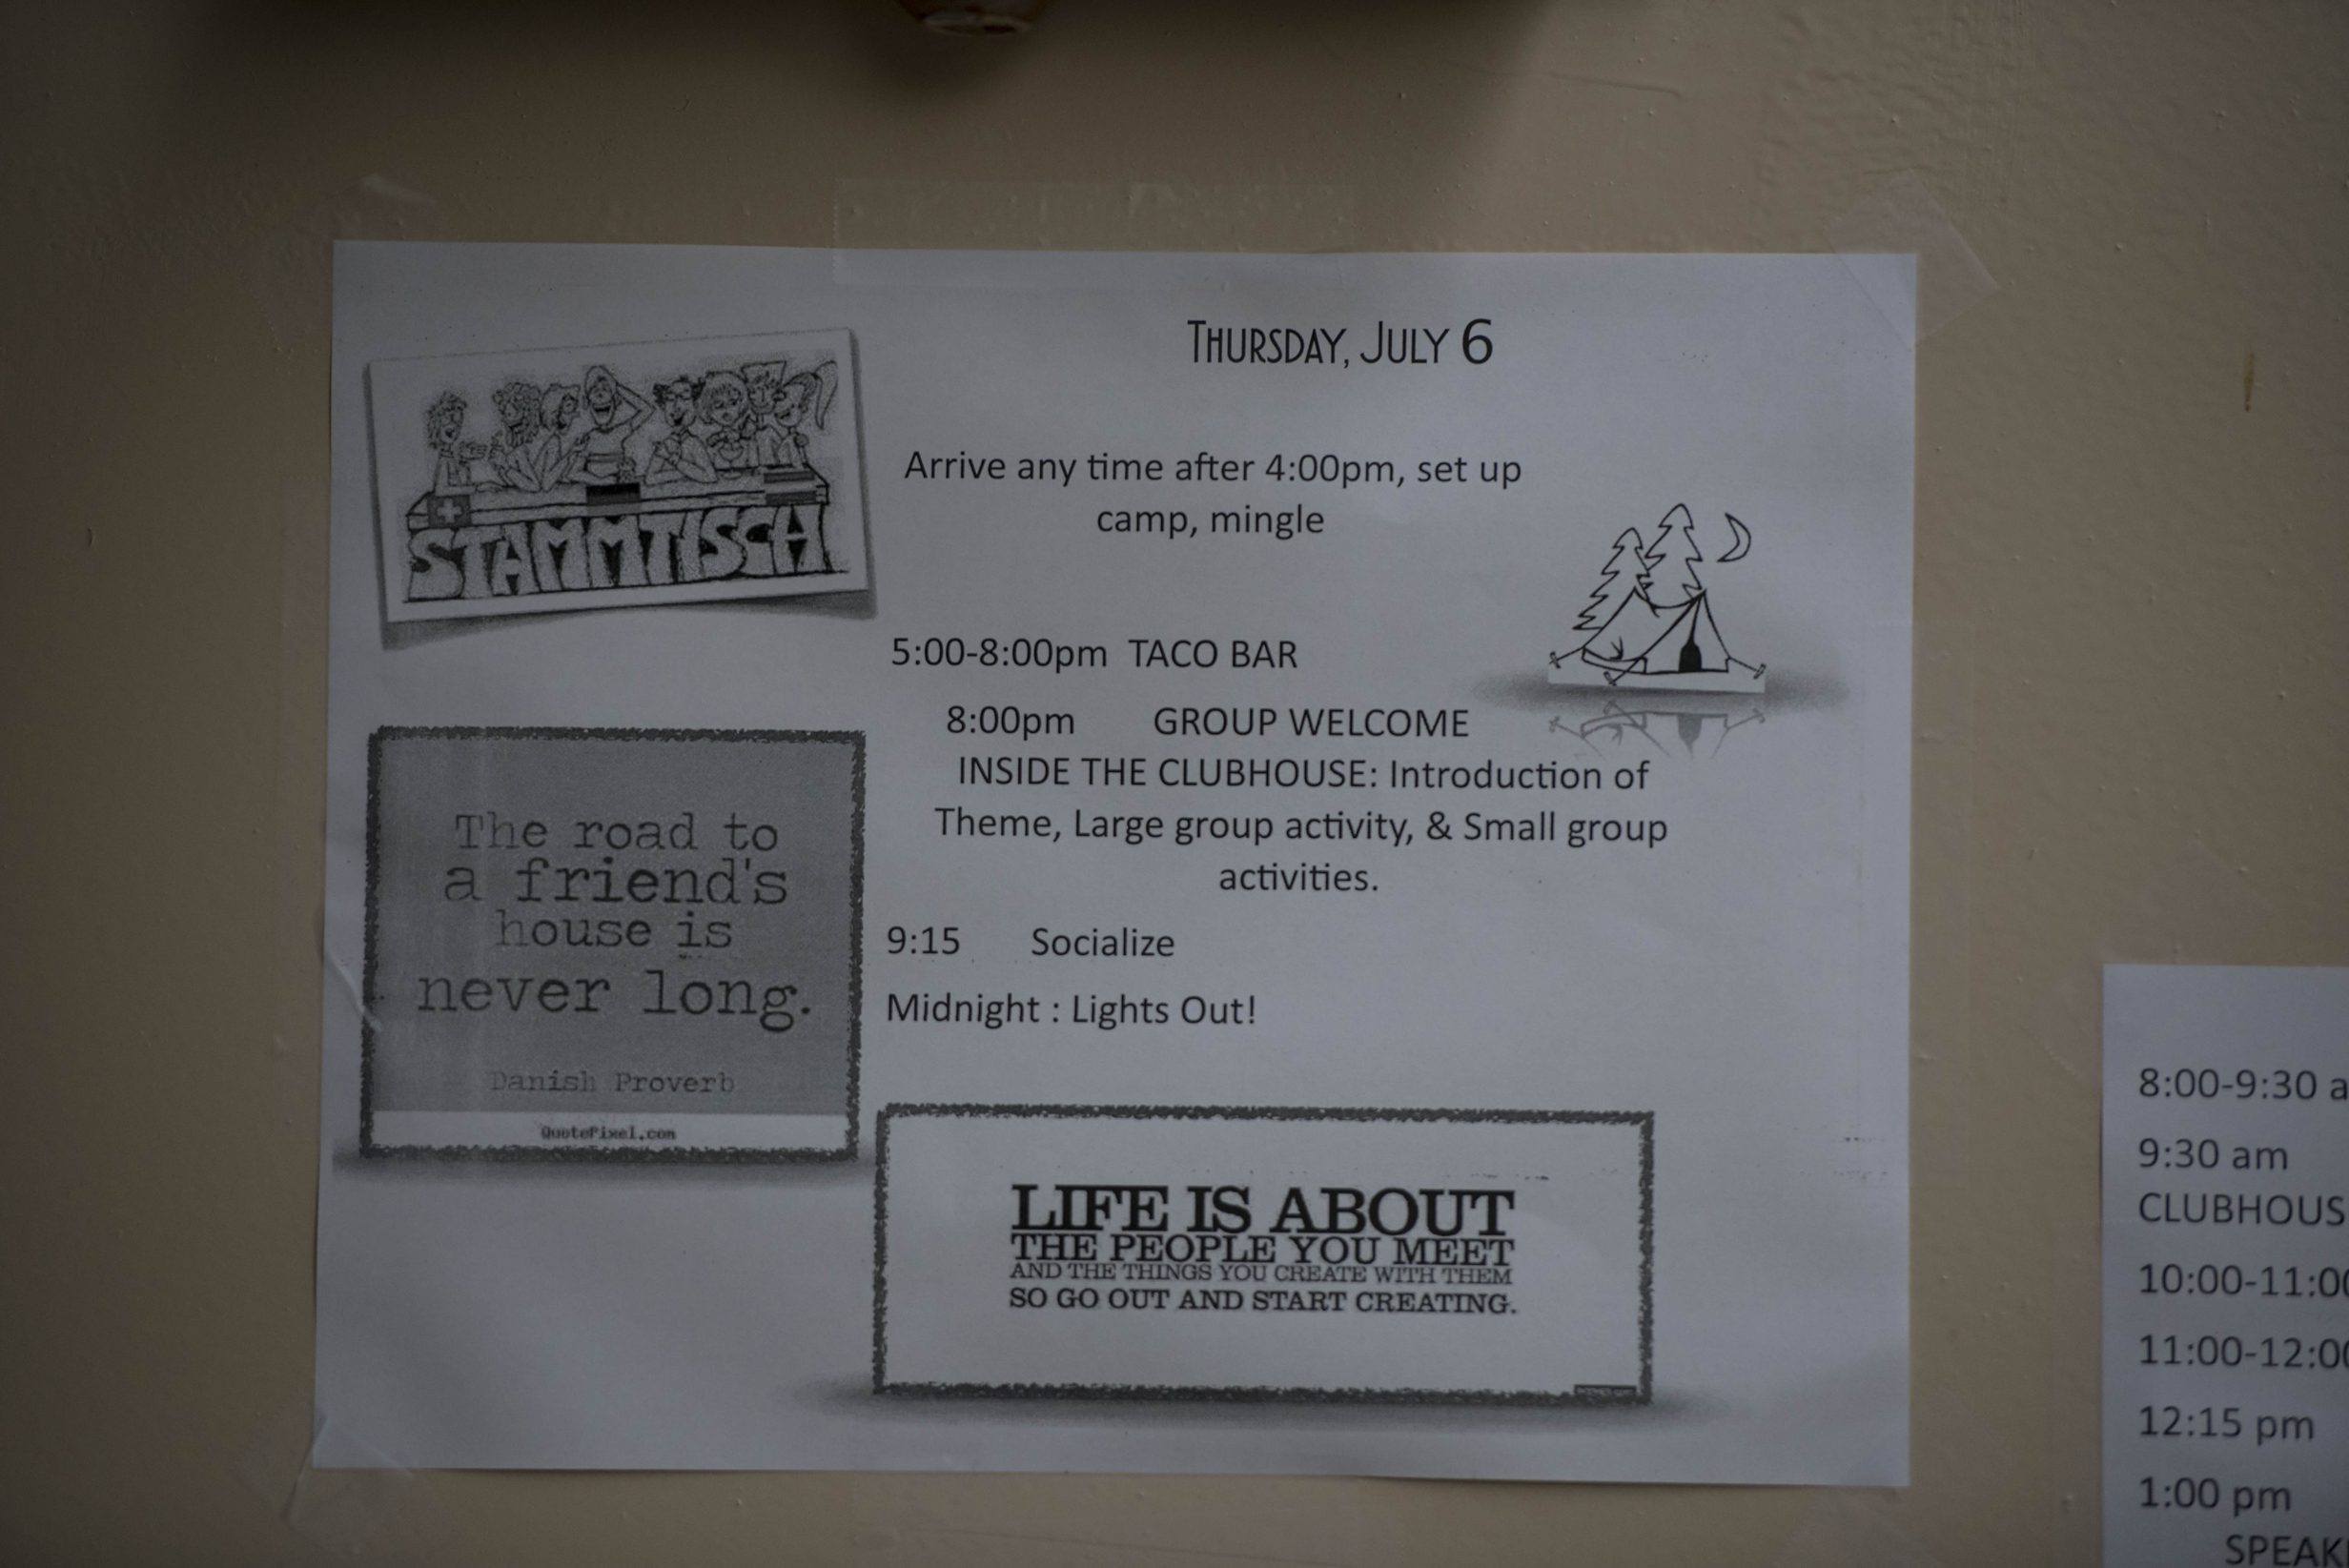 THURSDAY, JULY 6
STAMMTISCH
Arrive any time after 4:00pm, set up
camp, mingle
5:00-8:00pm TACO BAR
8:00pm GROUP WELCOME
INSIDE THE CLUBHOUSE: Introduction of
Theme, Large group activity, & Small group
activities.
9:15 Socialize
Midnight : Lights Out!
The road to
a friend's
house is
never long.
Danish Proverb
QuotePixel.com
LIFE IS ABOUT
THE PEOPLE YOU MEET
AND THE THINGS YOU CREATE WITH THEM
SO GO OUT AND START CREATING.
8:00-9:30 a
9:30 am
CLUBHOUS
10:00-11:00
11:00-12:00
12:15 pm
1:00 pm
SPEAK